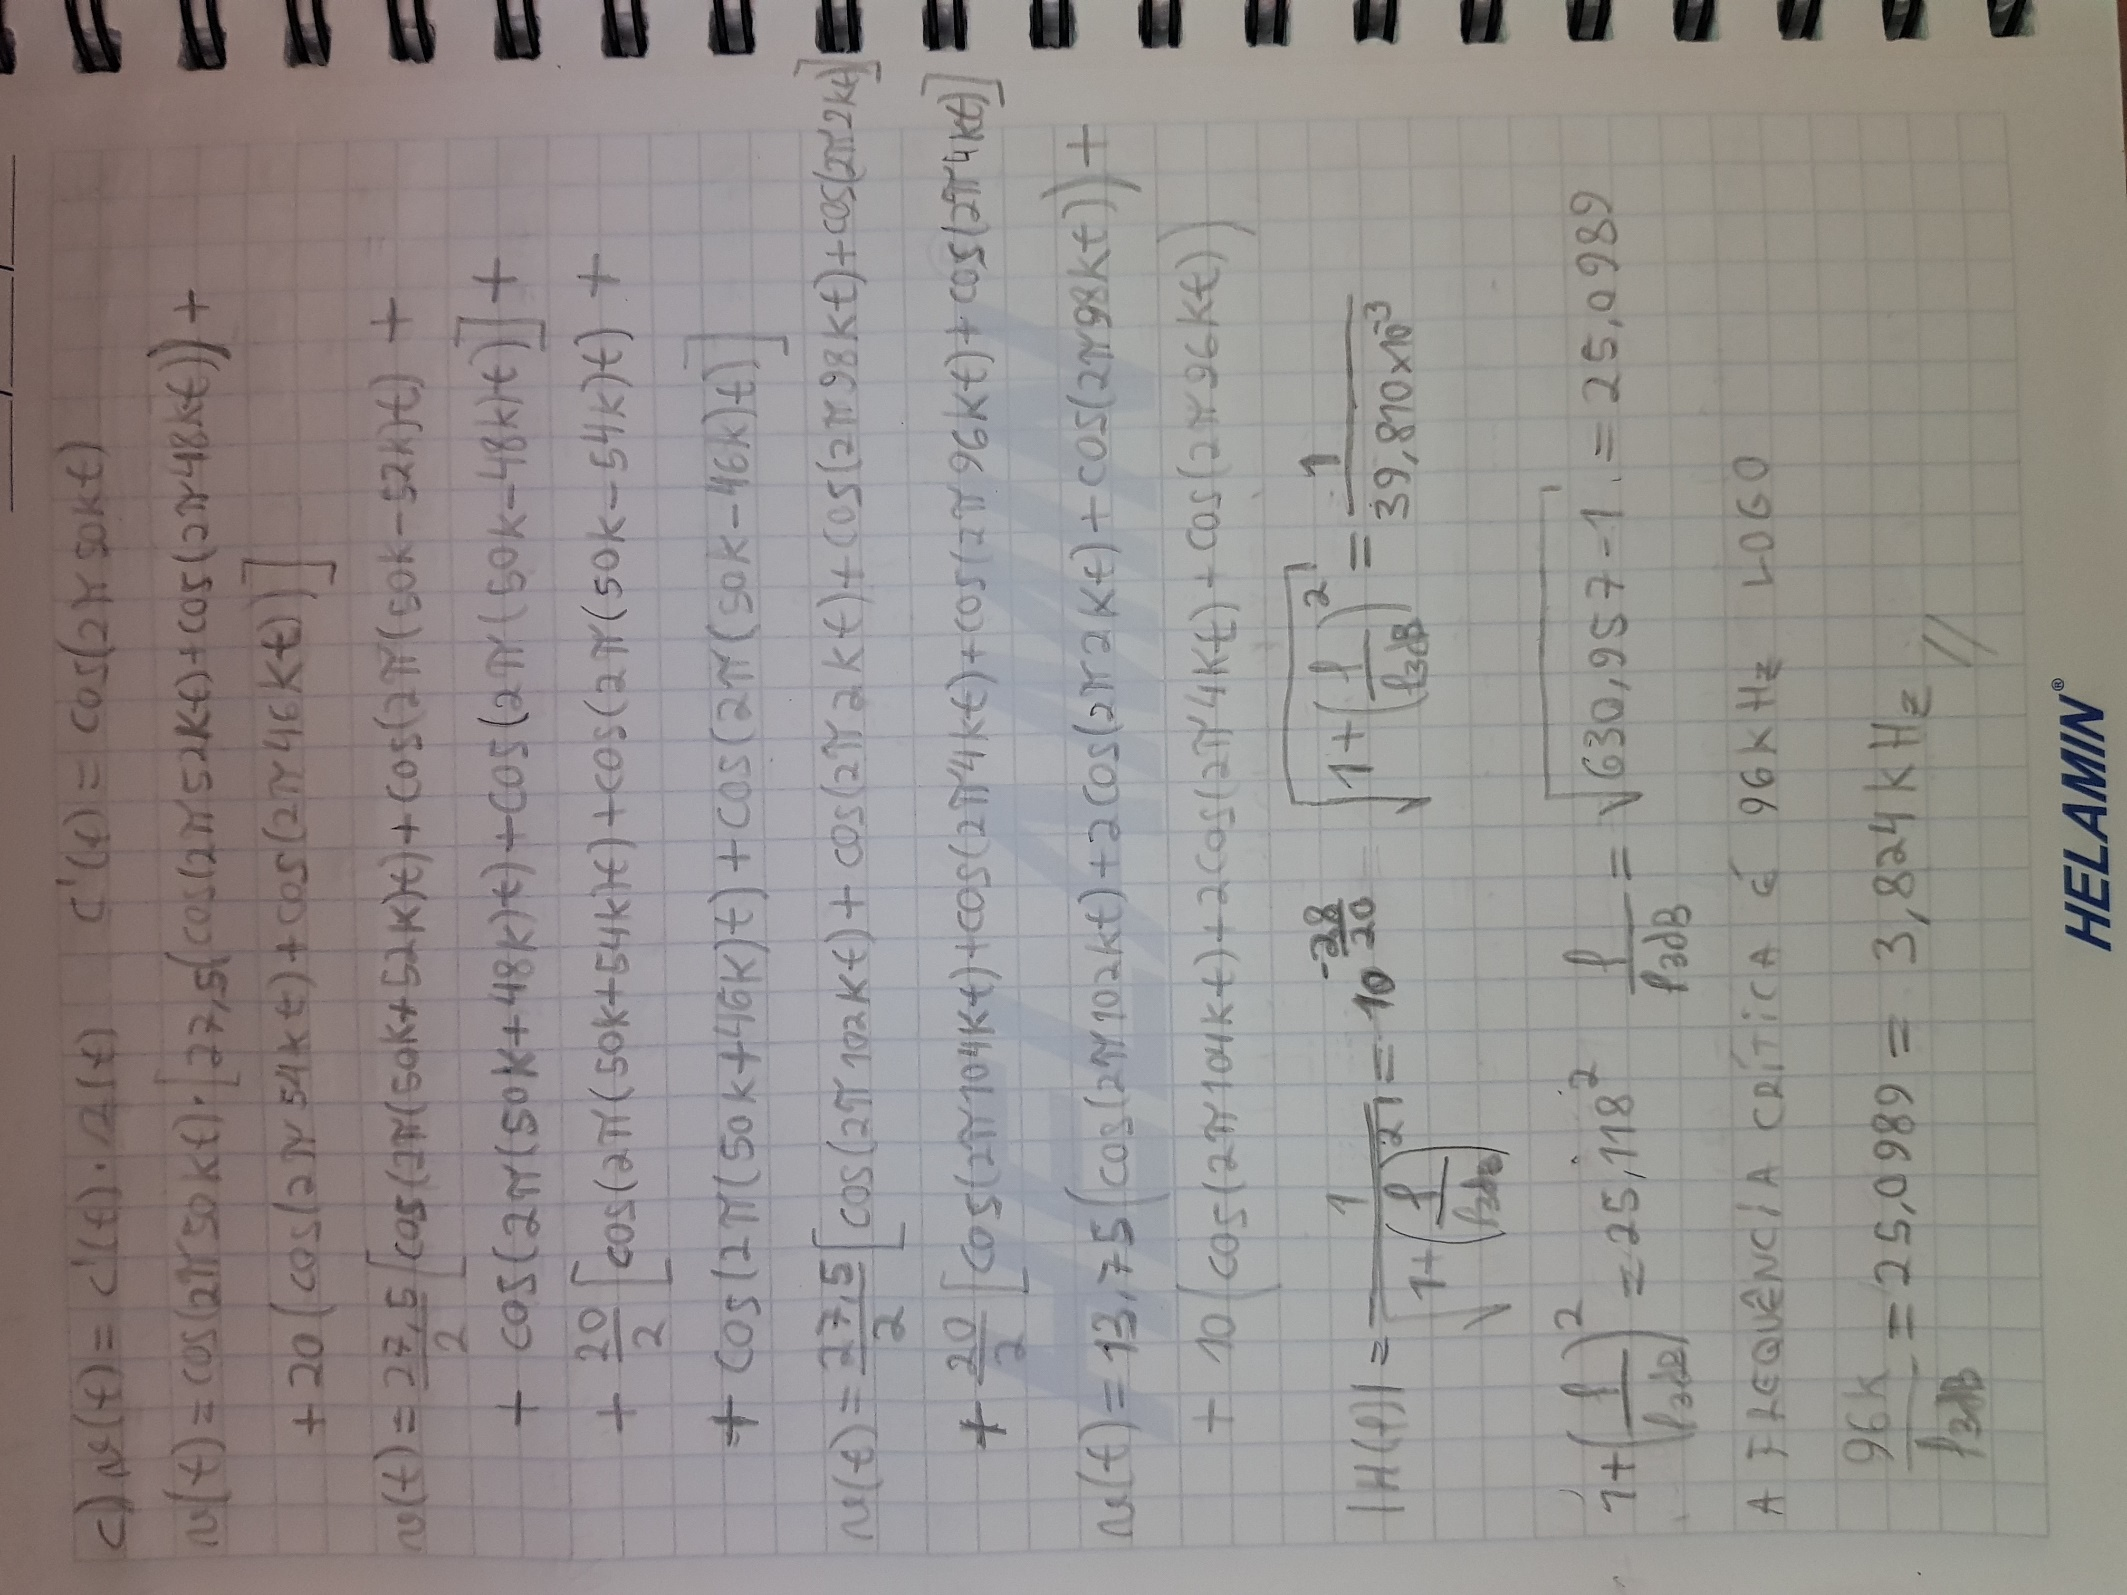 c) v(t) = c'(t) · s(t) c'(t) = cos(2π50kt)
v(t) = cos(2π50kt) · [27,5(cos(2π52kt) + cos(2π48kt)) +
+ 20(cos(2π54kt) + cos(2π46kt))]
v(t) = 27,5/2 [cos(2π(50k+52k)t) + cos(2π(50k-52k)t) +
+ cos(2π(50k+48k)t) + cos(2π(50k-48k)t)] +
+ 20/2 [cos(2π(50k+54k)t) + cos(2π(50k-54k)t) +
+ cos(2π(50k+46k)t) + cos(2π(50k-46k)t)]
v(t) = 27,5/2 [cos(2π102kt) + cos(2π2kt) + cos(2π98kt) + cos(2π2kt)]
+ 20/2 [cos(2π104kt) + cos(2π4kt) + cos(2π96kt) + cos(2π4kt)]
v(t) = 13,75(cos(2π102kt) + 2cos(2π2kt) + cos(2π98kt)) +
+ 10(cos(2π104kt) + 2cos(2π4kt) + cos(2π96kt))
|H(f)| = 1/√(1+(f/f3dB)²) = 10^(-28/20) √(1+(f/f3dB)²) = 1/(39,810x10⁻³)
1+(f/f3dB)² = 25,118² f/f3dB = √(630,957-1) = 25,0989
A FREQUÊNCIA CRÍTICA É 96kHz LOGO
96k/f3dB = 25,0989 = 3,824kHz //
HELAMIN®